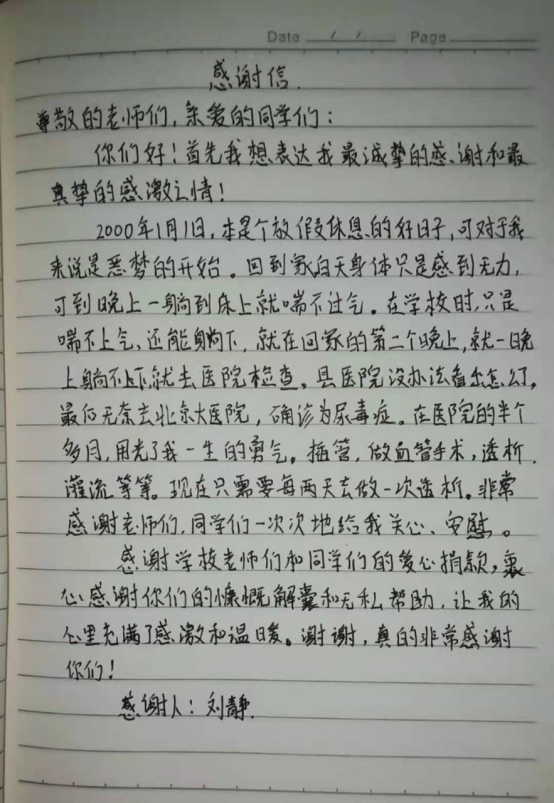 Date / / Page
感谢信.
尊敬的老师们,亲爱的同学们:
你们好!首先我想表达我最诚挚的感谢和最
真挚的感激之情!
2000年1月1日,本是个放假休息的好日子,可对于我
来说是恶梦的开始。回到家白天身体只是感到无力,
可到晚上一躺到床上就喘不过气。在学校时,只是
喘不上气、还能躺下,就在回家的第二个晚上,就一晚
上躺不下就去医院检查。县医院没办法看出怎么了,
最后无奈去北京大医院,确诊为尿毒症。在医院的半个
多月,用光了我一生的勇气。插管,做血管手术,透析.
灌流等等。现在只需要每两天去做一次透析。非常
感谢老师们,同学们一次次地给我关心、安慰。
感谢学校老师们和同学们的爱心捐款,衷
心感谢你们的慷慨解囊和无私帮助,让我的
心里充满了感激和温暖。谢谢,真的非常感谢
你们!
感谢人:刘静.